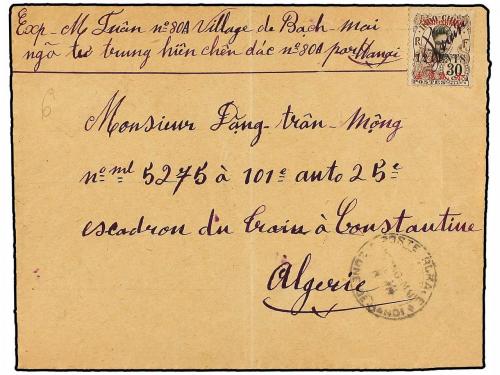 Exp- M Tuân nº 80A Village de Bạch-mai
ngõ tư trung hiên chên dác nº 80A par Hanoi
R F
12 CENTS 30
POSTES
6
Monsieur Dặng-trân-Mộng
nº ml 5275 à 101e auto 25e
escadron du Train à Constantine
Algerie
POSTE RURALE
HANOI